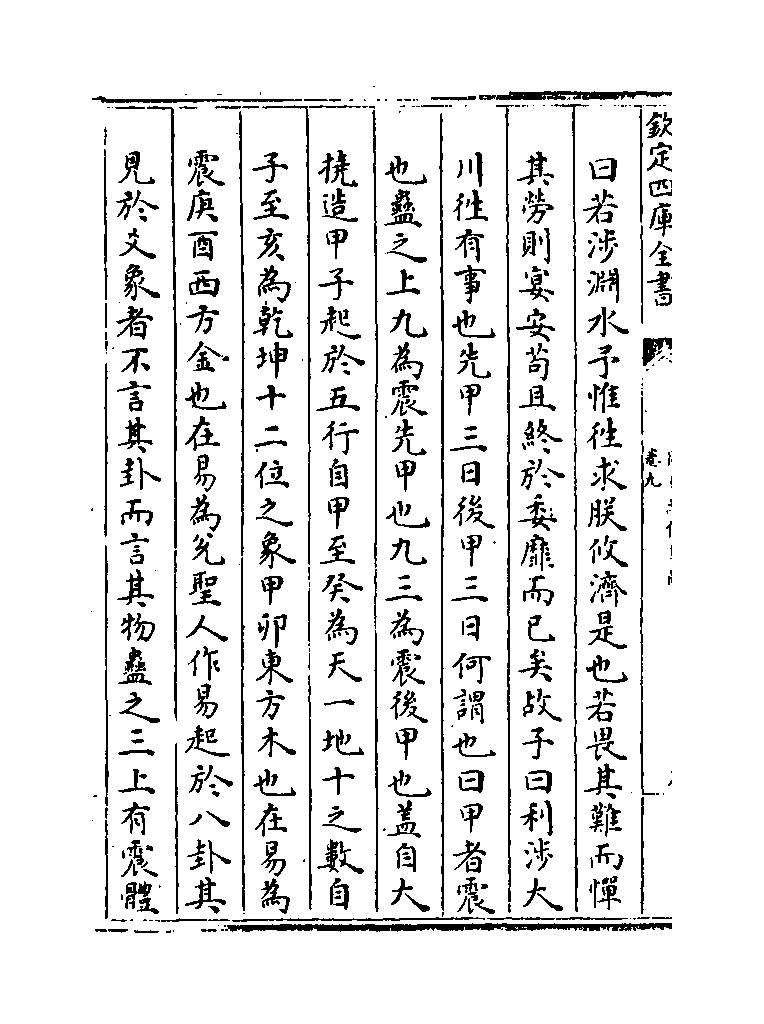 欽定四庫全書
卷九
曰若涉淵水予惟徃求朕攸濟是也若畏其難而憚
其勞則宴安苟且終於委靡而已矣故予曰利涉大
川徃有事也先甲三日後甲三日何謂也曰甲者震
也蠱之上九為震先甲也九三為震後甲也盖自大
撓造甲子起於五行自甲至癸為天一地十之數自
子至亥為乾坤十二位之象甲卯東方木也在易為
震庚酉西方金也在易為兊聖人作易起於八卦其
見於爻象者不言其卦而言其物蠱之三上有震體